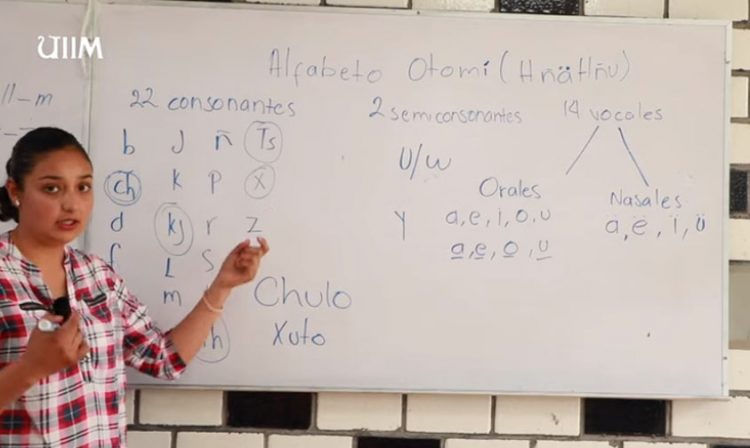 UIIM
Alfabeto Otomí (HñäHñu)
ll-m
22 consonantes
2 semiconsonantes
14 vocales
b J ñ Ts
ch K P X
d kj r z
f L S
m
h
U/w
Y
Orales
a, e, i, o, u
a̲, e̲, o̲, u̲
Nasales
ä, ë, ï, ü
Chulo
Xuto